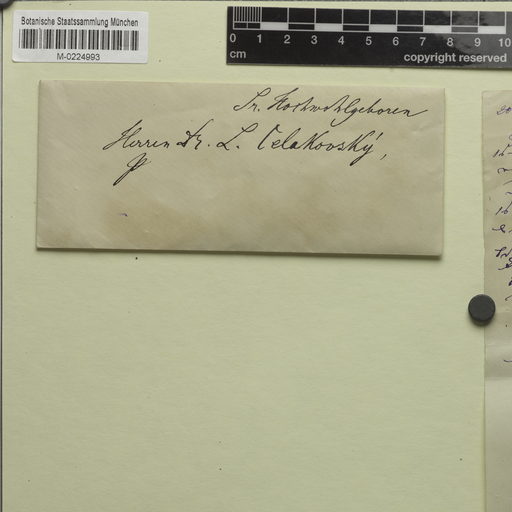 Botanische Staatssammlung München
M-0224993
0 1 2 3 4 5 6 7 8 9 10
cm
copyright reserved
Sr. Hochwohlgeboren
Herren Dr. L. Čelakovský,